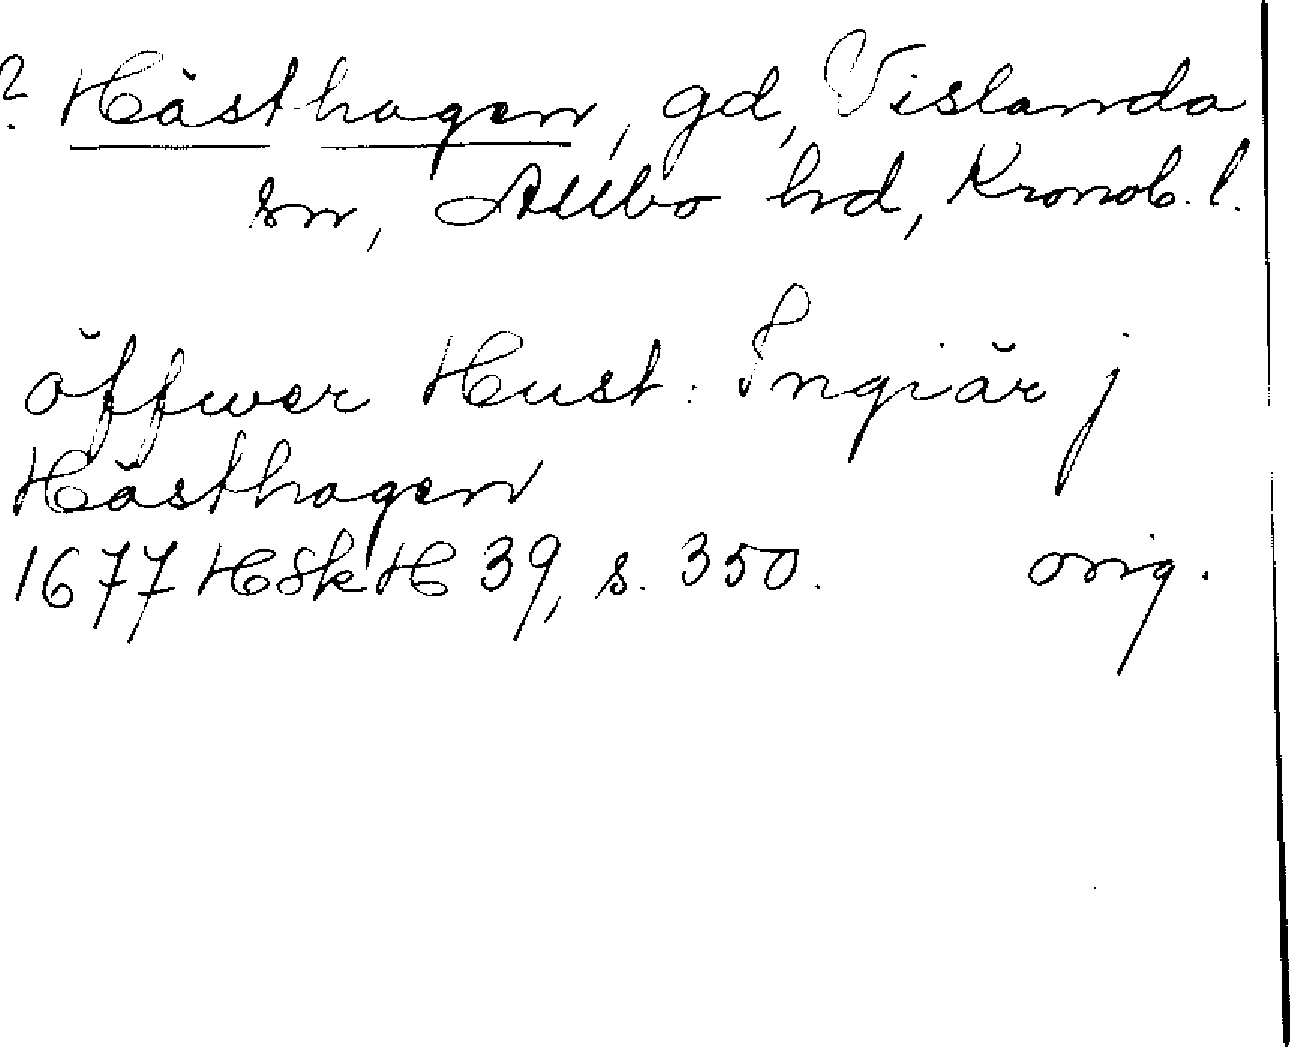 ? Hästhagen, gd, Vislanda
sn, Allbo hd, Kronob. l.
öffwer Hust: Ingiär j
Hästhagen
1677 HSkH 39, s. 350. orig.